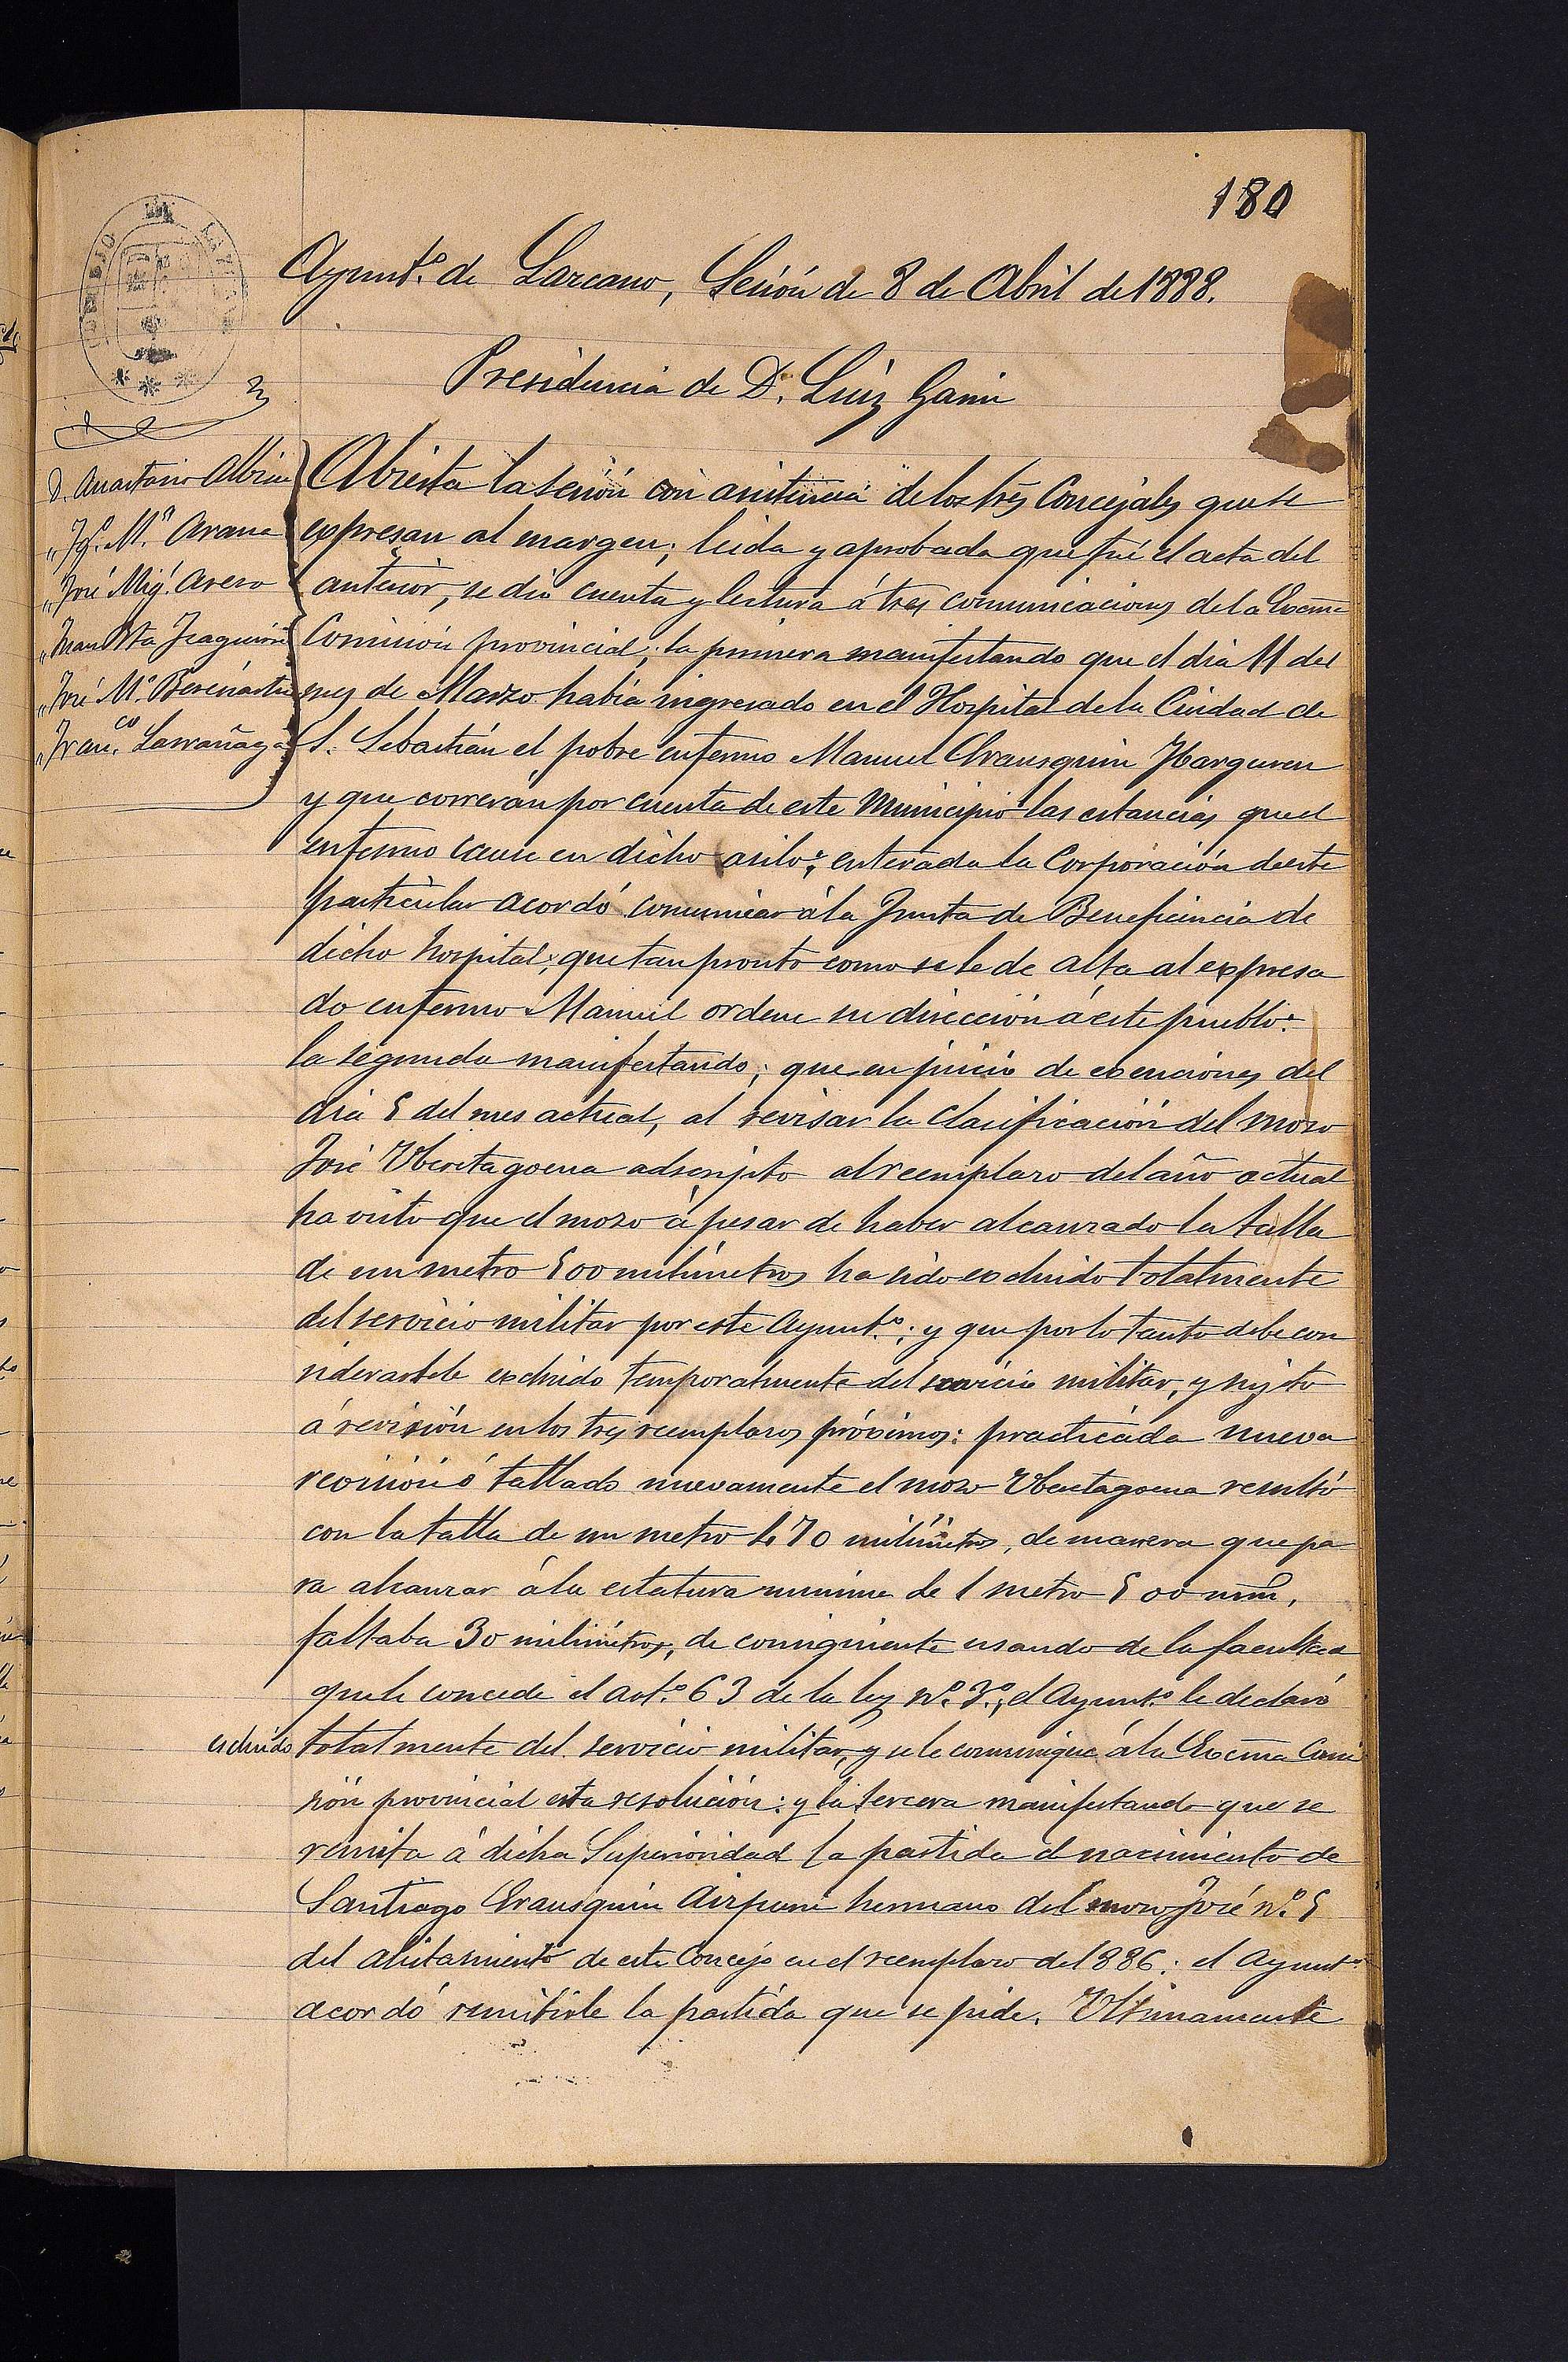 180
Ayunt.º de Lazcano, Sesión de 8 de Abril de 1888.
Presidencia de D. Luis Garin
D. Anastasio Albisu
„ Ig.º M.ª Arana
„ José Mig.l
„ Juan Bta
„ José M.ª
„ Fran.co Larrañaga
Abierta la sesión con asistencia de los trés Concejales que se
expresan al margen; leida y aprobada que fué el acta del
anterior, se dió cuenta y lectura á tres comunicaciones de la Excma
Comisión provincial; la primera manifestando que el dia 11 del
mes de Marzo había ingresado en el Hospital de la Ciudad de
S. Sebastián el pobre enfermo Manuel Erausquin Ibarguren
y que correrán por cuenta de este Municipio las estancias que el
enfermo cause en dicho asilo: enterada la Corporación de este
particular acordó comunicar á la Junta de Beneficincia de
dicho hospital; que tan pronto como se le de alta al expresa
do enfermo Manuel ordene su dirección á este pueblo:
la segunda manifestando; que en juicio de exenciones del
dia 5 del mes actual, al revisar la clasificación del mozo
José Uberetagoena adscripto al reemplazo del año actual
ha visto que el mozo á pesar de haber alcanzado la talla
de un metro 500 milímetros ha sido excluido totalmente
del servicio militar por este Ayunt.º; y que por lo tanto debe con
siderarsele excluido temporalmente del servicio militar, y sujeto
á revisión en los tres reemplazos próximos: practicada nueva
revisión ó tallado nuevamente el mozo Uberetagoena resultó
con la talla de un metro 470 milímetros, de manera que pa
ra alcanzar á la estatura minima de 1 metro 500 mm,
faltaba 30 milímetros; de consiguiente usando de la facultad
que le concede el art.º 63 de la ley nº. 3º.; el Ayunt.º le declaró
excluido totalmente del servicio militar, y se le comunique á la Excma Comi
sión provincial esta resolución: y la tercera manifestando que se
remita á dicha Superioridad la partida d nacimiento de
Santiago Erausquin Airpuru hermano del mozo José nº. 5
del alistamiento de este Concejo en el reemplazo de 1886: el Ayunt.º
acordó remitirle la partida que se pide. Ultimamente